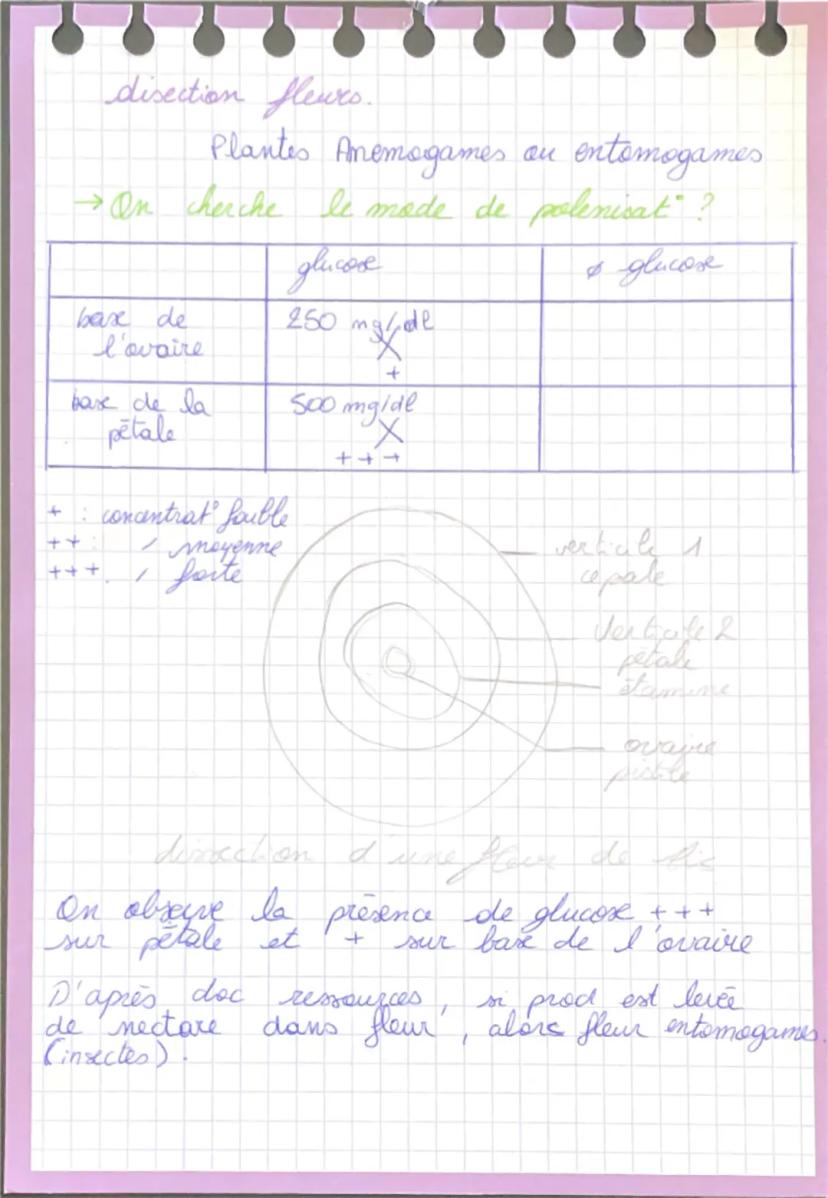 disection fleurs.
Plantes Anemogames ou entomogames
→ On cherche le mode de polenisat° ?
glucose
ø glucose
base de
l'ovaire
250 mg/dl
X
+
base de la
pétale
500 mg/dl
X
+++
+ : concentrat° faible
++ : / moyenne
+++ . / forte
verticile 1
cepale
Verticile 2
pétale
étamine
ovaire
pistile
dissection d'une fleur de
On observe la présence de glucose +++
sur pétale et + sur base de l'ovaire
D'après doc ressources, si prod est
de nectare dans fleur, alors fleur entomogames.
(insectes).